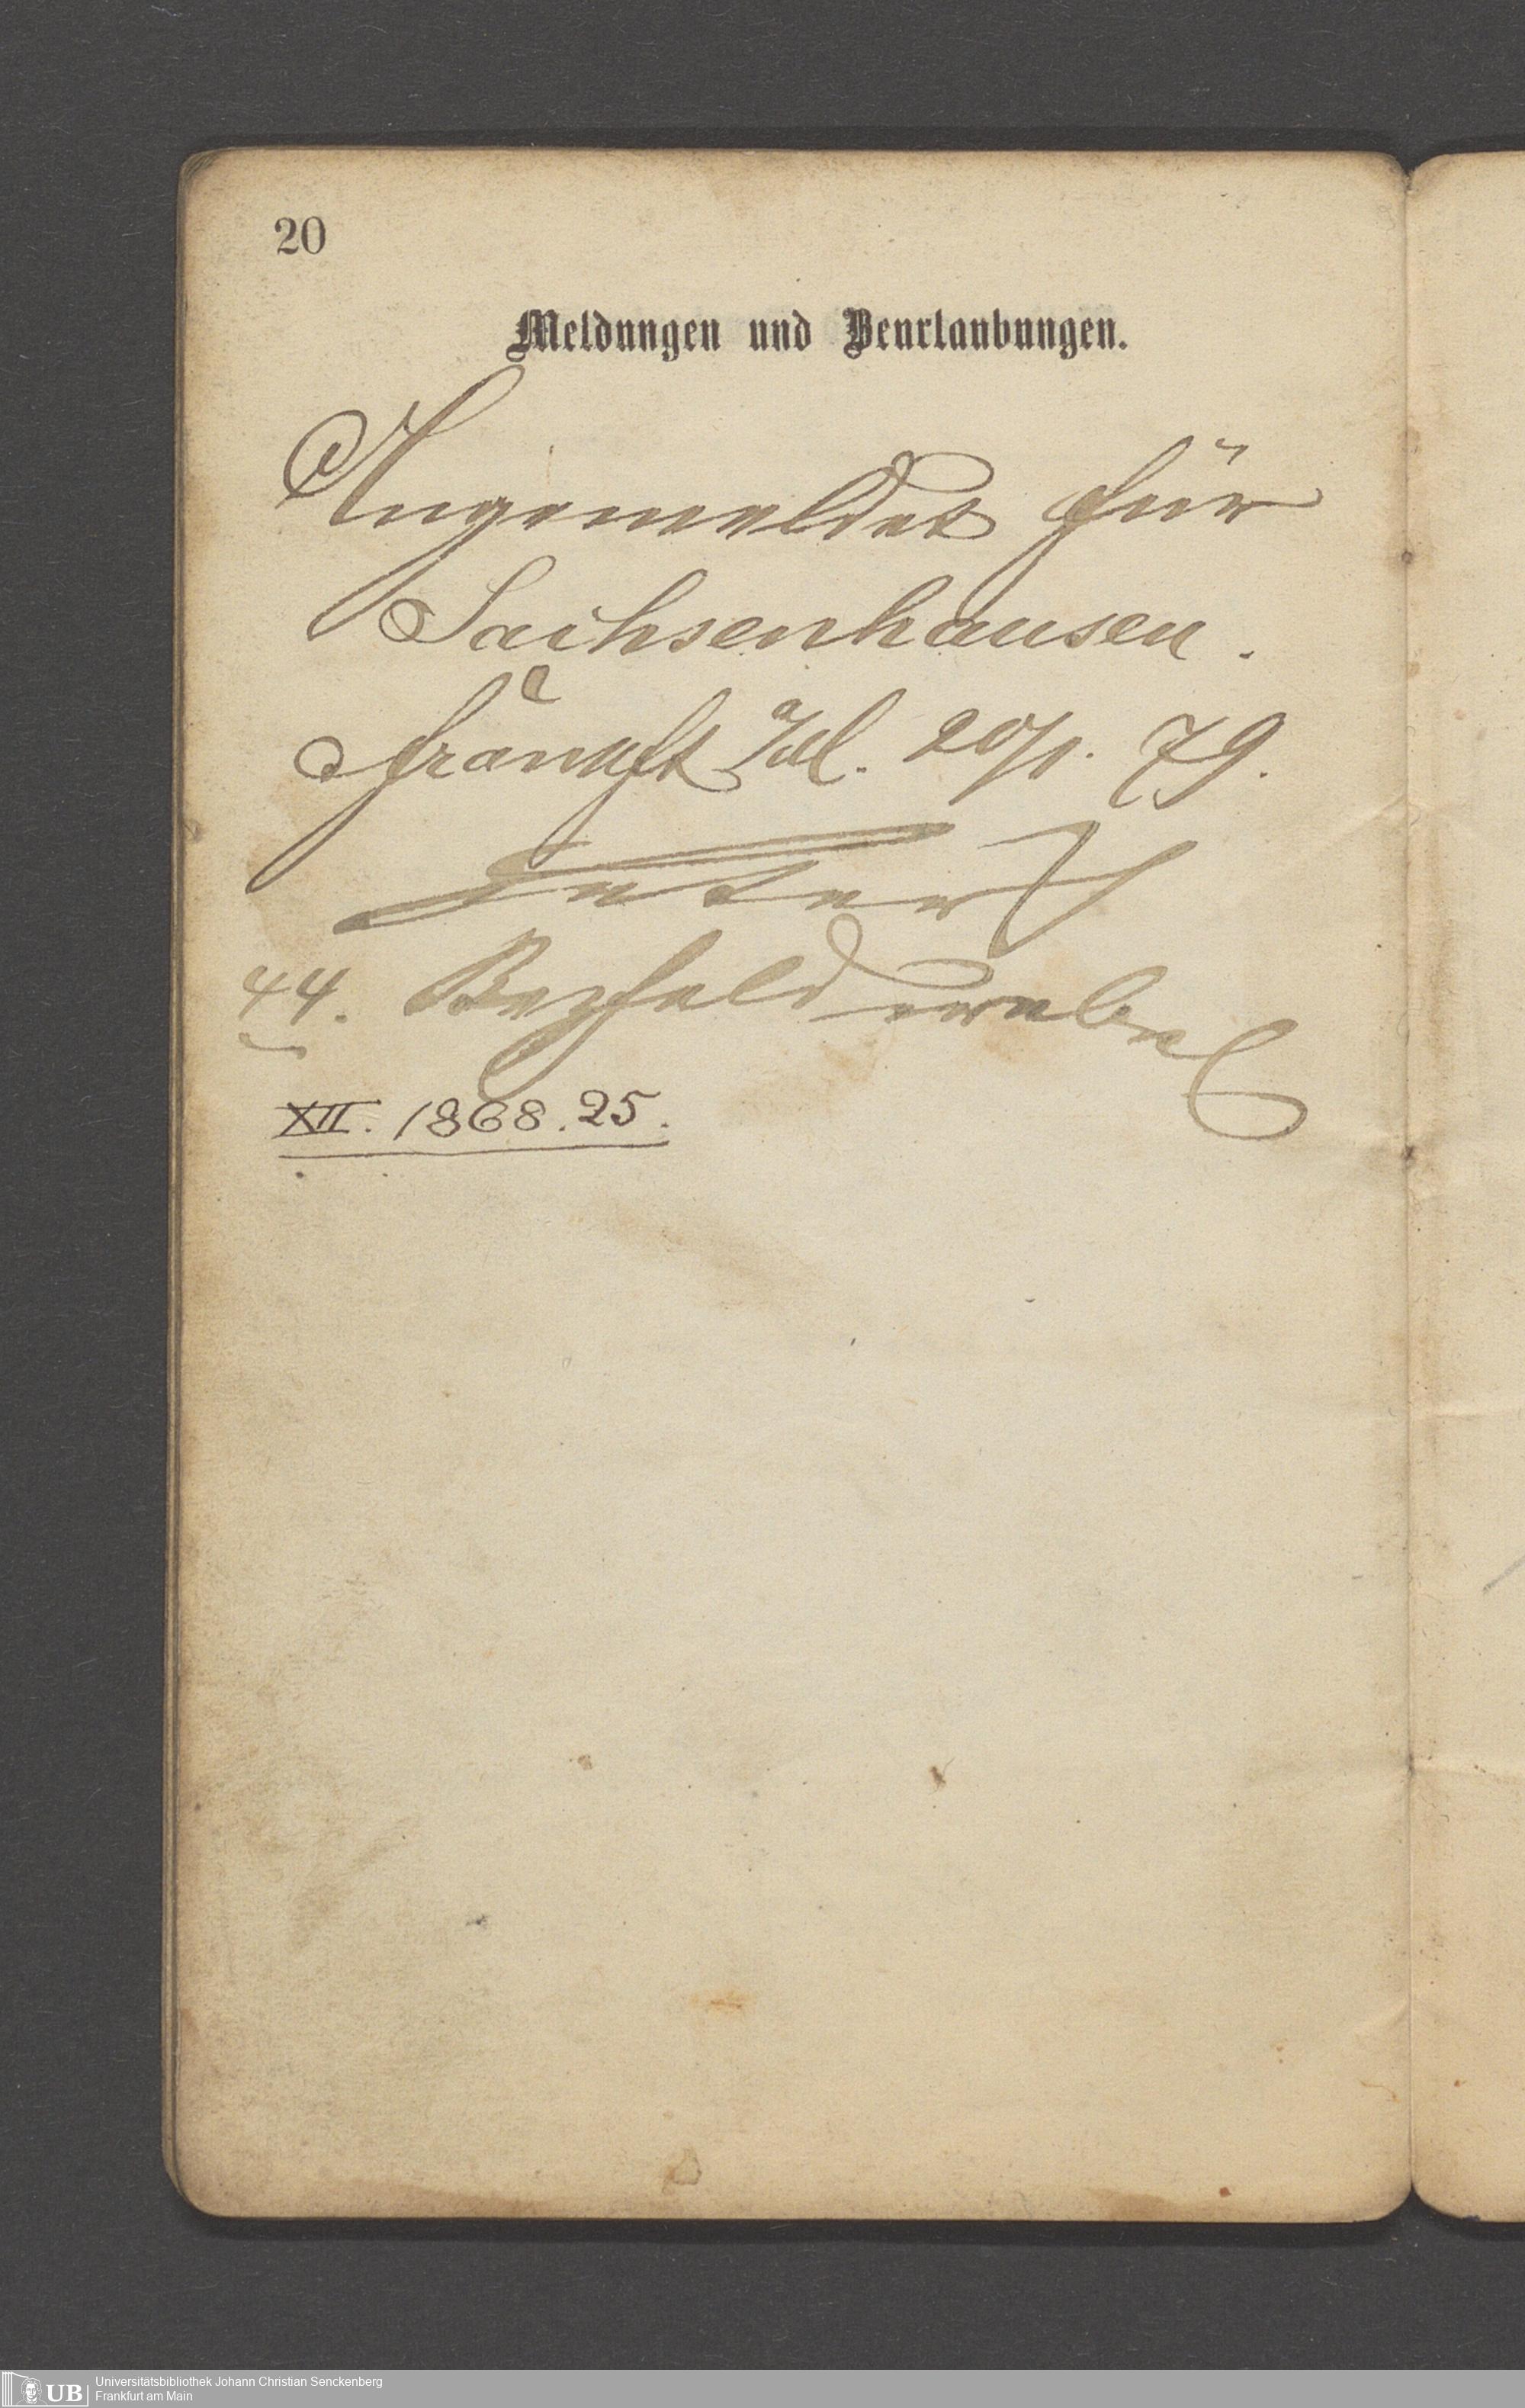 20
Meldungen und Beurlaubungen.
Angemeldet für
Sachsenhausen.
Frankft a/M. 20/1. 79.
44. Bezfeldwebel
XII. 1868. 25.
UB Universitätsbibliothek Johann Christian Senckenberg
Frankfurt am Main